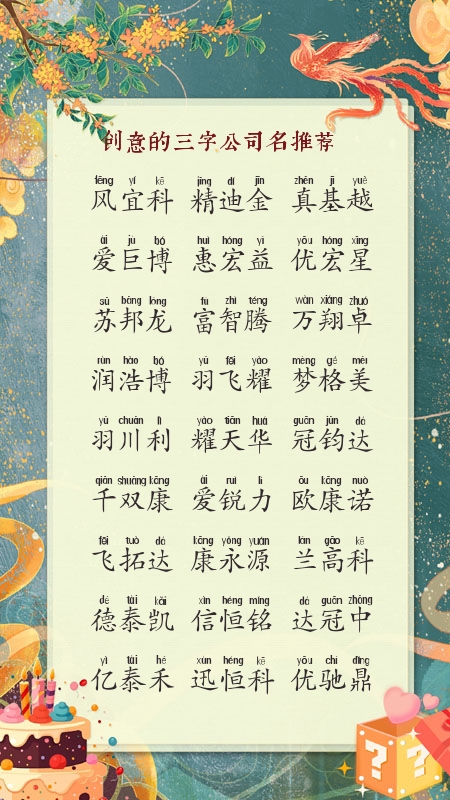 创意的三字公司名推荐
fēng yí kē jīng dí jīn zhēn jī yuè
风宜科 精迪金 真基越
ài jù bó huì hóng yì yōu hóng xīng
爱巨博 惠宏益 优宏星
sū bāng lóng fù zhì téng wàn xiáng zhuó
苏邦龙 富智腾 万翔卓
rùn hào bó yǔ fēi yào mèng gé měi
润浩博 羽飞耀 梦格美
yǔ chuān lì yào tiān huá guān jūn dá
羽川利 耀天华 冠钧达
qiān shuāng kāng ài ruì lì ōu kāng nuò
千双康 爱锐力 欧康诺
fēi tuò dá kāng yǒng yuán lán gāo kē
飞拓达 康永源 兰高科
dé tài kǎi xìn héng míng dá guān zhōng
德泰凯 信恒铭 达冠中
yì tài hé xùn héng kē yōu chí dǐng
亿泰禾 迅恒科 优驰鼎